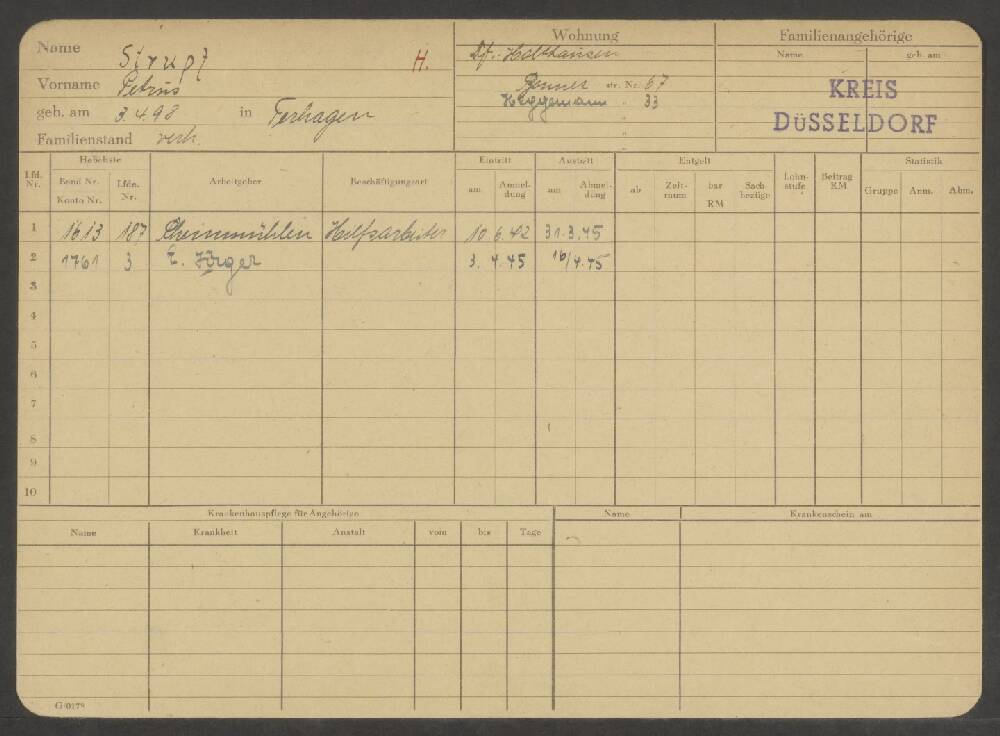 Name Strupf H.
Vorname Petrus
geb. am 3.4.98 in Terhagen
Familienstand verh.
Wohnung
Df.-Holthausen
Bonner str. Nr. 67
Heggemann " 33
Familienangehörige
Name geb. am
KREIS
DÜSSELDORF
Lfd. Nr. Hebeliste Arbeitgeber Beschäftigungsart Eintritt Austritt Entgelt Lohn-stufe Beitrag RM Statistik
Band Nr. Konto Nr. Lfde. Nr. am Anmel-dung am Abmel-dung ab Zeit-raum bar RM Sach-bezüge Gruppe Anm. Abm.
1 1613 187 Rheinmühlen Hilfsarbeiter 10.6.42 31.3.45
2 1761 3 3.4.45 16/4.45
3
4
5
6
7
8
9
10
Krankenhauspflege für Angehörige
Name Krankheit Anstalt vom bis Tage
Name Krankenschein am
G/0178